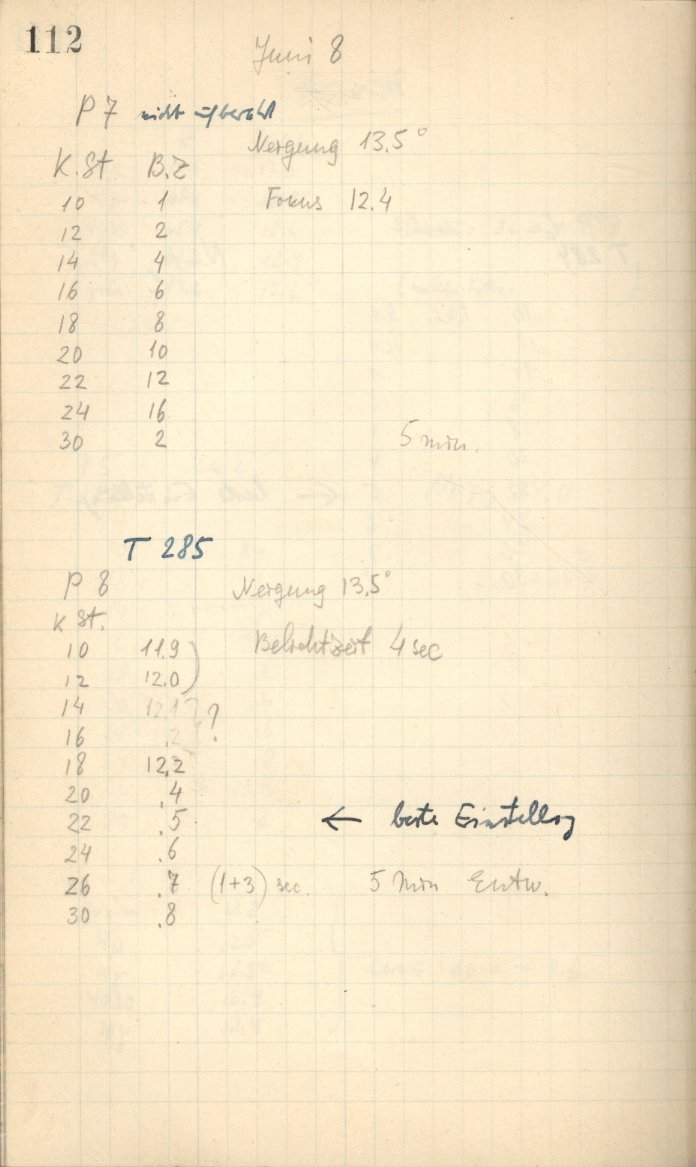 112
Juni 8
P 7 nicht
Neigung 13,5°
K.St B.Z
Fokus 12.4
10 1
12 2
14 4
16 6
18 8
20 10
22 12
24 16
30 2
5 min.
T 285
P 8 Neigung 13,5°
K St.
10 11.9
Belichtzeit 4 sec
12 12.0
14 12.1 ?
16 .2
18 12,2
20 .4
22 .5 ← beste Einstellg
24 .6
26 .7 (1+3) sec. 5 Min Entw.
30 .8